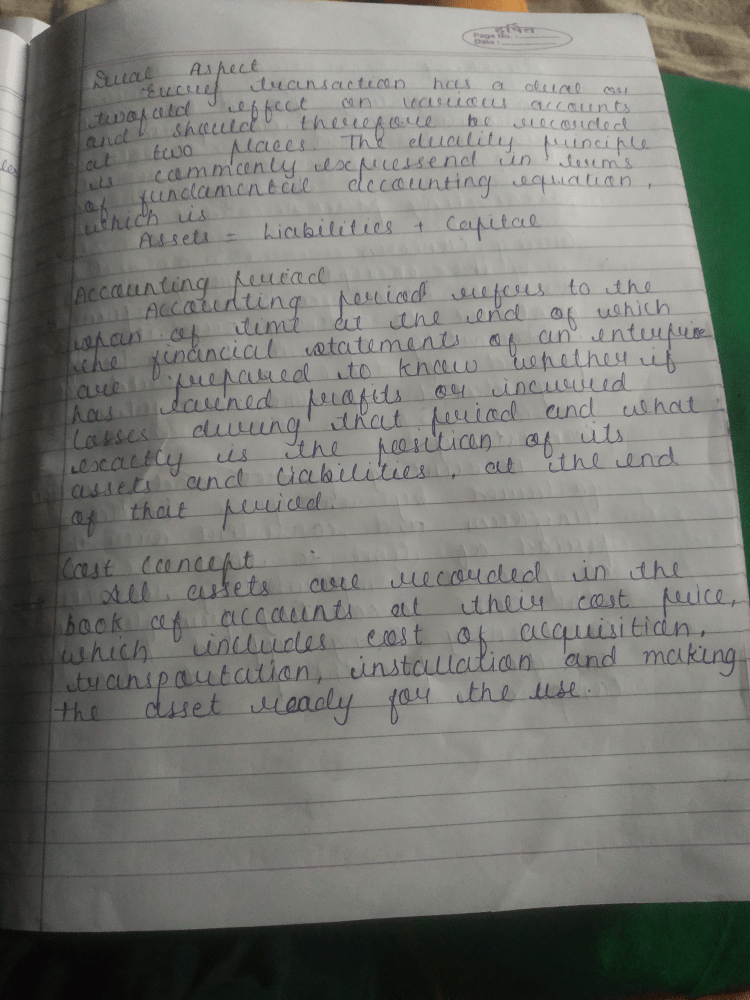 हर्षित
Page No.
Date
Dual Aspect
Every transaction has a dual or
twofold effect on various accounts
and should therefore be recorded
at two places. The duality principle
is commonly expressend in terms
of fundamental accounting equation,
which is
Assets = Liabilities + Capital
Accounting period
Accounting period refers to the
span of time at the end of which
the financial statements of an enterprise
are prepared to know whether it
has earned profits or incurred
losses during that period and what
exactly is the position of its
assets and liabilities, at the end
of that period.
Cost Concept :
All assets are recorded in the
book of accounts at their cost price,
which includes cost of acquisition,
transportation, installation and making
the asset ready for the use.